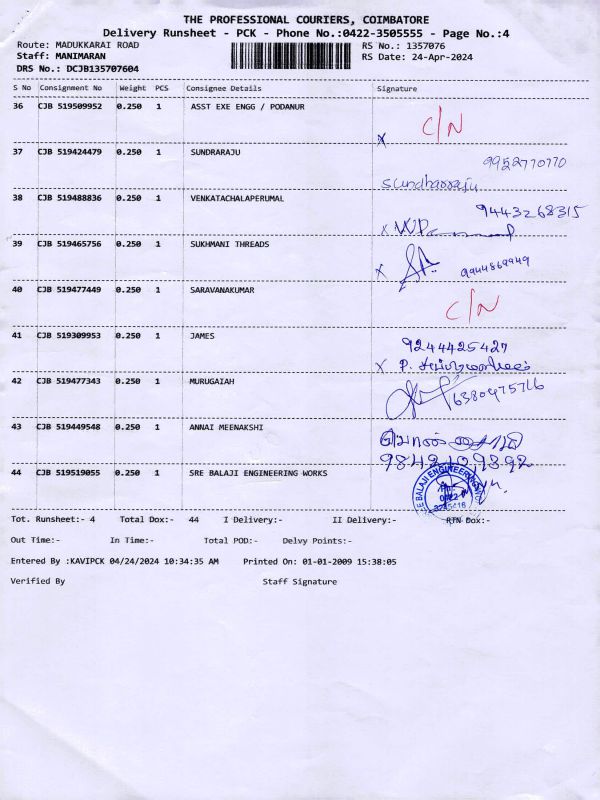 THE PROFESSIONAL COURIERS, COIMBATORE
Delivery Runsheet - PCK - Phone No.:0422-3505555 - Page No.:4
Route: MADUKKARAI ROAD RS No.: 1357076
Staff: MANIMARAN RS Date: 24-Apr-2024
DRS No.: DCJB135707604
S No Consignment No Weight PCS Consignee Details Signature
36 CJB 519509952 0.250 1 ASST EXE ENGG / PODANUR
x C/N
37 CJB 519424479 0.250 1 SUNDRARAJU
9952770770
Sundharraju
38 CJB 519488836 0.250 1 VENKATACHALAPERUMAL
9443268315
x
39 CJB 519465756 0.250 1 SUKHMANI THREADS
x 9944869949
40 CJB 519477449 0.250 1 SARAVANAKUMAR
C/N
41 CJB 519309953 0.250 1 JAMES
9244425427
x P.
42 CJB 519477343 0.250 1 MURUGAIAH
6380975716
43 CJB 519449548 0.250 1 ANNAI MEENAKSHI
9842109892
44 CJB 519519055 0.250 1 SRE BALAJI ENGINEERING WORKS
BALAJI ENGINEERING
0422
Tot. Runsheet:- 4 Total Dox:- 44 I Delivery:- II Delivery:- RTN Dox:-
Out Time:- In Time:- Total POD:- Delvy Points:-
Entered By :KAVIPCK 04/24/2024 10:34:35 AM Printed On: 01-01-2009 15:38:05
Verified By Staff Signature